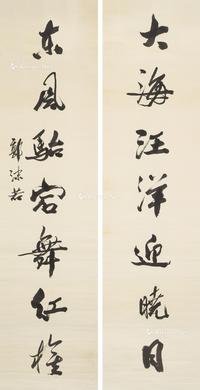 大海汪洋迎曉日
东風駘宕舞红旗
郭沫若